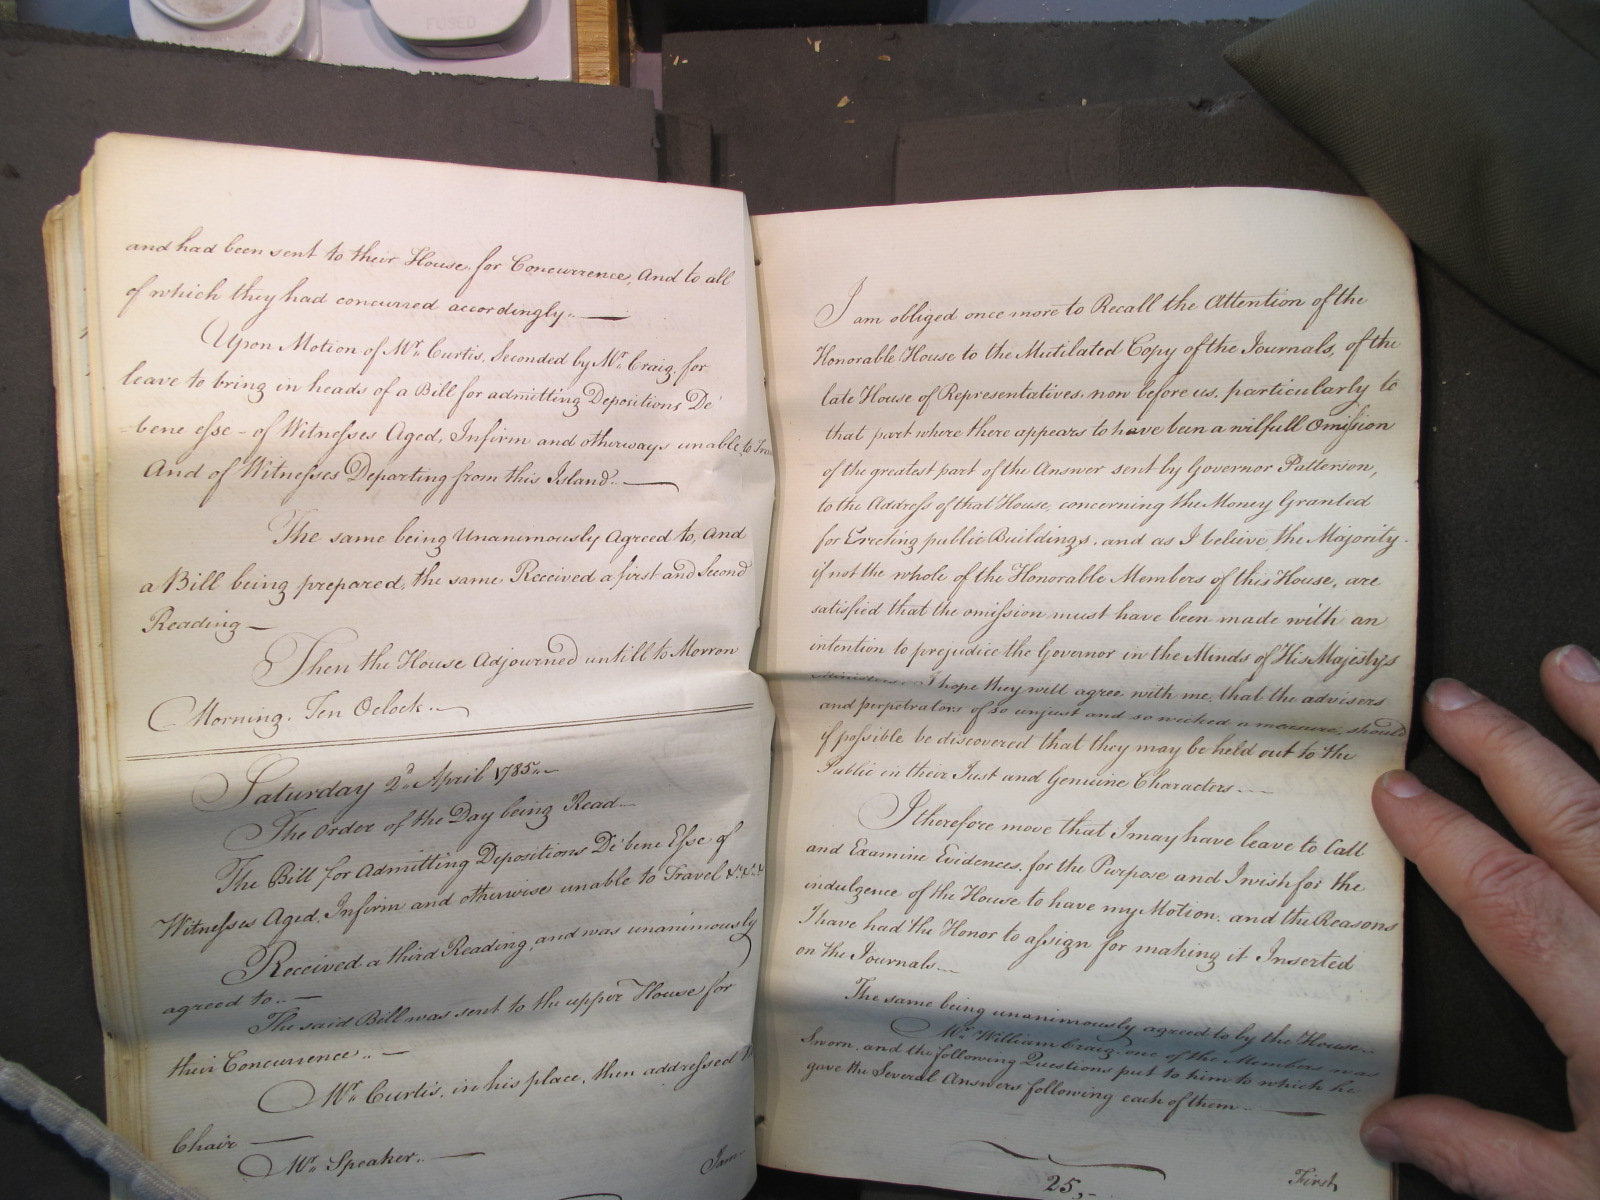 FUSED
and had been sent to their House, for Concurrence, And to all
of which they had concurred accordingly..
Upon Motion of Mr. Curtis, Seconded by Mr. Craig, for
leave to bring in heads of a Bill for admitting Depositions De'
=bene esse - of Witnesses Aged, Infirm and otherways unable to
And of Witnesses Departing from this Island..
The same being Unanimously Agreed to, And
a Bill being prepared, the same Received a first and Second
Reading
Then the House Adjourned untill to Morrow
Morning, Ten Oclock..
Saturday 2d. April 1785..
The Order of the Day being Read..
The Bill for Admitting Depositions De'bene Esse of
Witnesses Aged, Infirm and otherwise unable to Travel &c. &c. &
Received a third Reading, and was unanimously
agreed to..
The said Bill was sent to the upper House for
their Concurrence..
Mr. Curtis, in his place, then addressed
Chair
Mr. Speaker..
I am
I am obliged once more to Recall the Attention of the
Honorable House to the Mutilated Copy of the Journals, of the
late House of Representatives, now before us, particularly to
that part where there appears to have been a wilfull Omission
of the greatest part of the Answer sent by Governor Patterson,
to the Address of that House, concerning the Money Granted
for Erecting public Buildings, and as I believe the Majority
if not the whole of the Honorable Members of this House, are
satisfied that the omission must have been made with an
intention to prejudice the Governor in the Minds of His Majestys
Ministers, I hope they will agree with me, that the advisers
and perpetrators of so unjust and so wicked a measure, should
if possible be discovered that they may be held out to the
Public in their Just and Genuine Characters..
I therefore move that I may have leave to Call
and Examine Evidences, for the Purpose and I wish for the
indulgence of the House to have my Motion, and the Reasons
I have had the Honor to assign for making it Inserted
on the Journals..
The same being unanimously agreed to by the House..
Mr. William Craig, one of the Members was
Sworn, and the following Questions put to him to which he
gave the Several Answers following each of them..
25,-
First